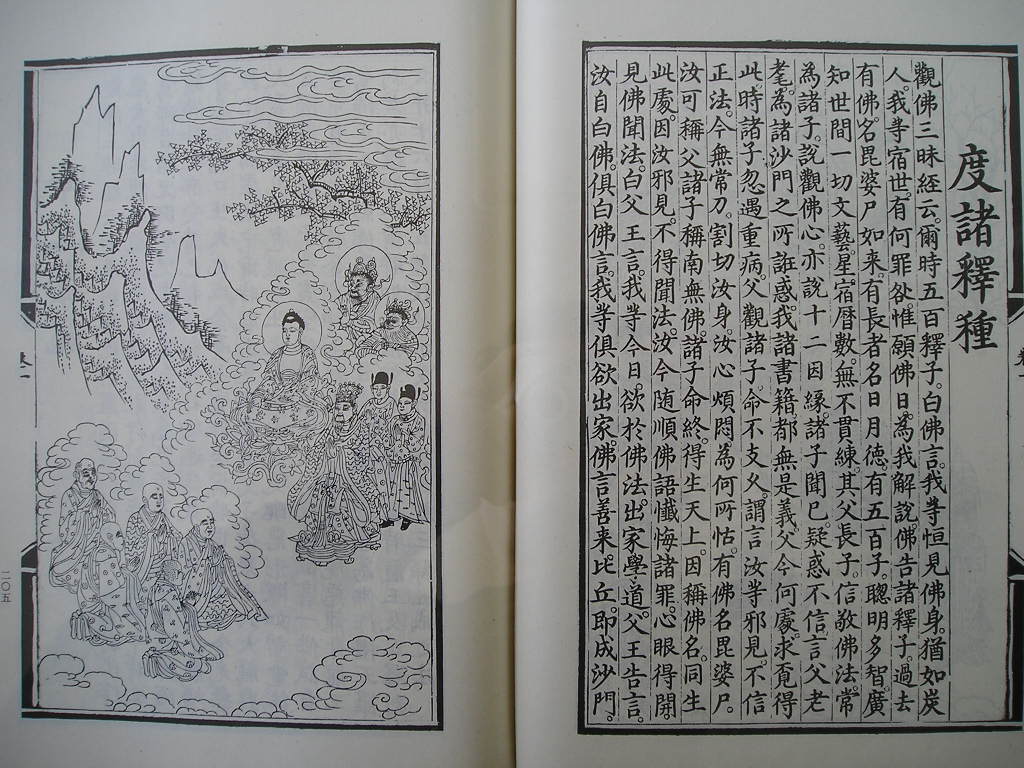 度諸釋種
觀佛三昧經云。爾時五百釋子。白佛言。我等恒見佛身。猶如炭
人。我等宿世。有何罪咎。惟願佛日。為我解說。佛告諸釋子。過去
有佛。名毘婆尸如来。有長者名日月德。有五百子。聰明多智。廣
知世間一切文藝。星宿曆數。無不貫練。其父長子。信敬佛法。常
為諸子。說觀佛心。亦說十二因緣。諸子聞已。疑惑不信。言父老
耄。為諸沙門之所誑惑。我諸書籍。都無是義。父今何處。求覓得
此。時諸子忽遇重病。父觀諸子。命不支久。謂言汝等邪見。不信
正法。今無常刀。割切汝身。汝心煩悶。為何所怙。有佛名毘婆尸。
汝可稱父。諸子稱南無佛。諸子命終。得生天上。因稱佛名。同生
此處。因汝邪見。不得聞法。汝今随順佛語。懺悔諸罪。心眼得開。
見佛聞法。白父王言。我等今日。欲於佛法出家學道。父王告言。
汝自白佛。俱白佛言。我等俱欲出家。佛言善来。比丘。即成沙門。
二〇五